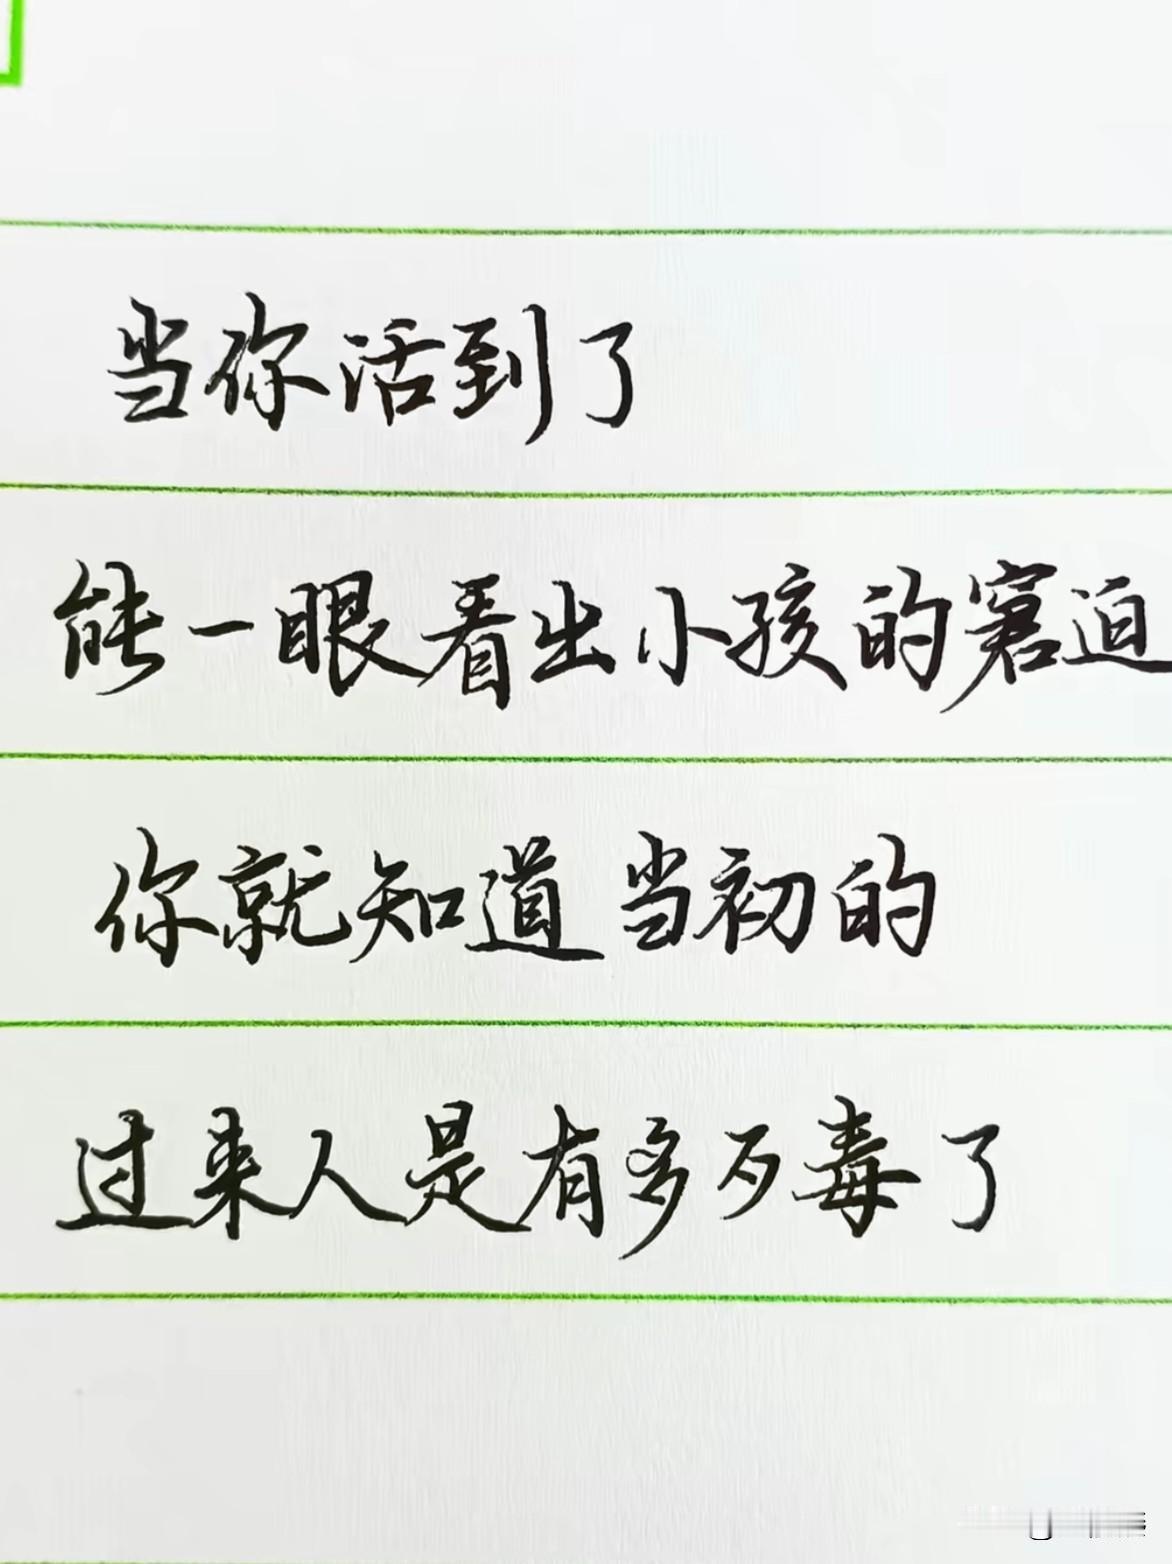 当你活到了
能一眼看出小孩的窘迫
你就知道当初的
过来人是有多歹毒了